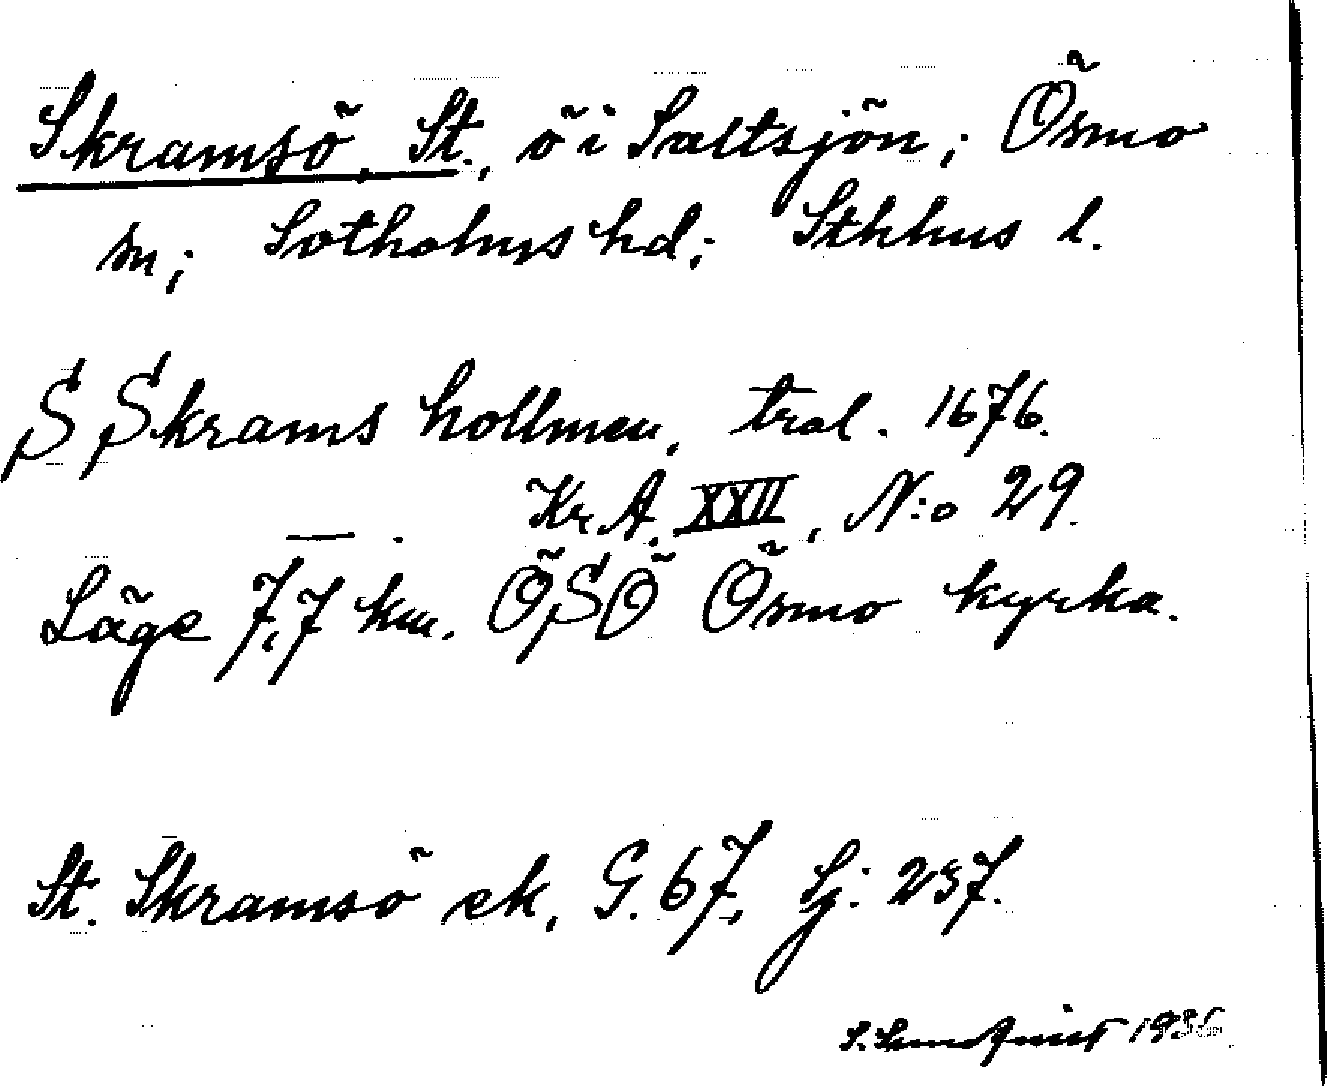 Skramsö, St., ö i Saltsjön; Ösmo
sn; Sotholms hd; Sthlms l.
S Skrams hollmen, trol. 1676.
Kr. A. XXII, N:o 29.
— .
Läge 7,7 km. ÖSÖ Ösmo kyrka.
St. Skramsö ek. G. 67, Sj: 237.
S. Lundquist 1936